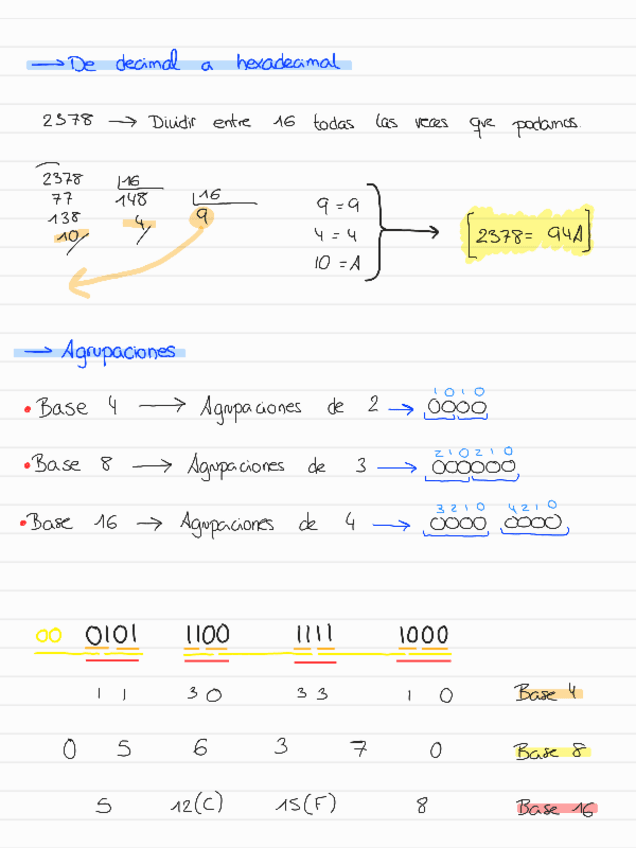 → De decimal a hexadecimal
2378 → Dividir entre 16 todas las veces que podamos.
2378 16
77 148 16
138 4 9
10
9 = 9
4 = 4
10 = A
[2378 = 94A]
→ Agrupaciones
• Base 4 → Agrupaciones de 2 → 0000
1 0 1 0
• Base 8 → Agrupaciones de 3 → 000000
2 1 0 2 1 0
• Base 16 → Agrupaciones de 4 → 0000 0000
3 2 1 0 4 2 1 0
00 0101 1100 1111 1000
1 1 3 0 3 3 1 0 Base 4
0 5 6 3 7 0 Base 8
5 12(C) 15(F) 8 Base 16